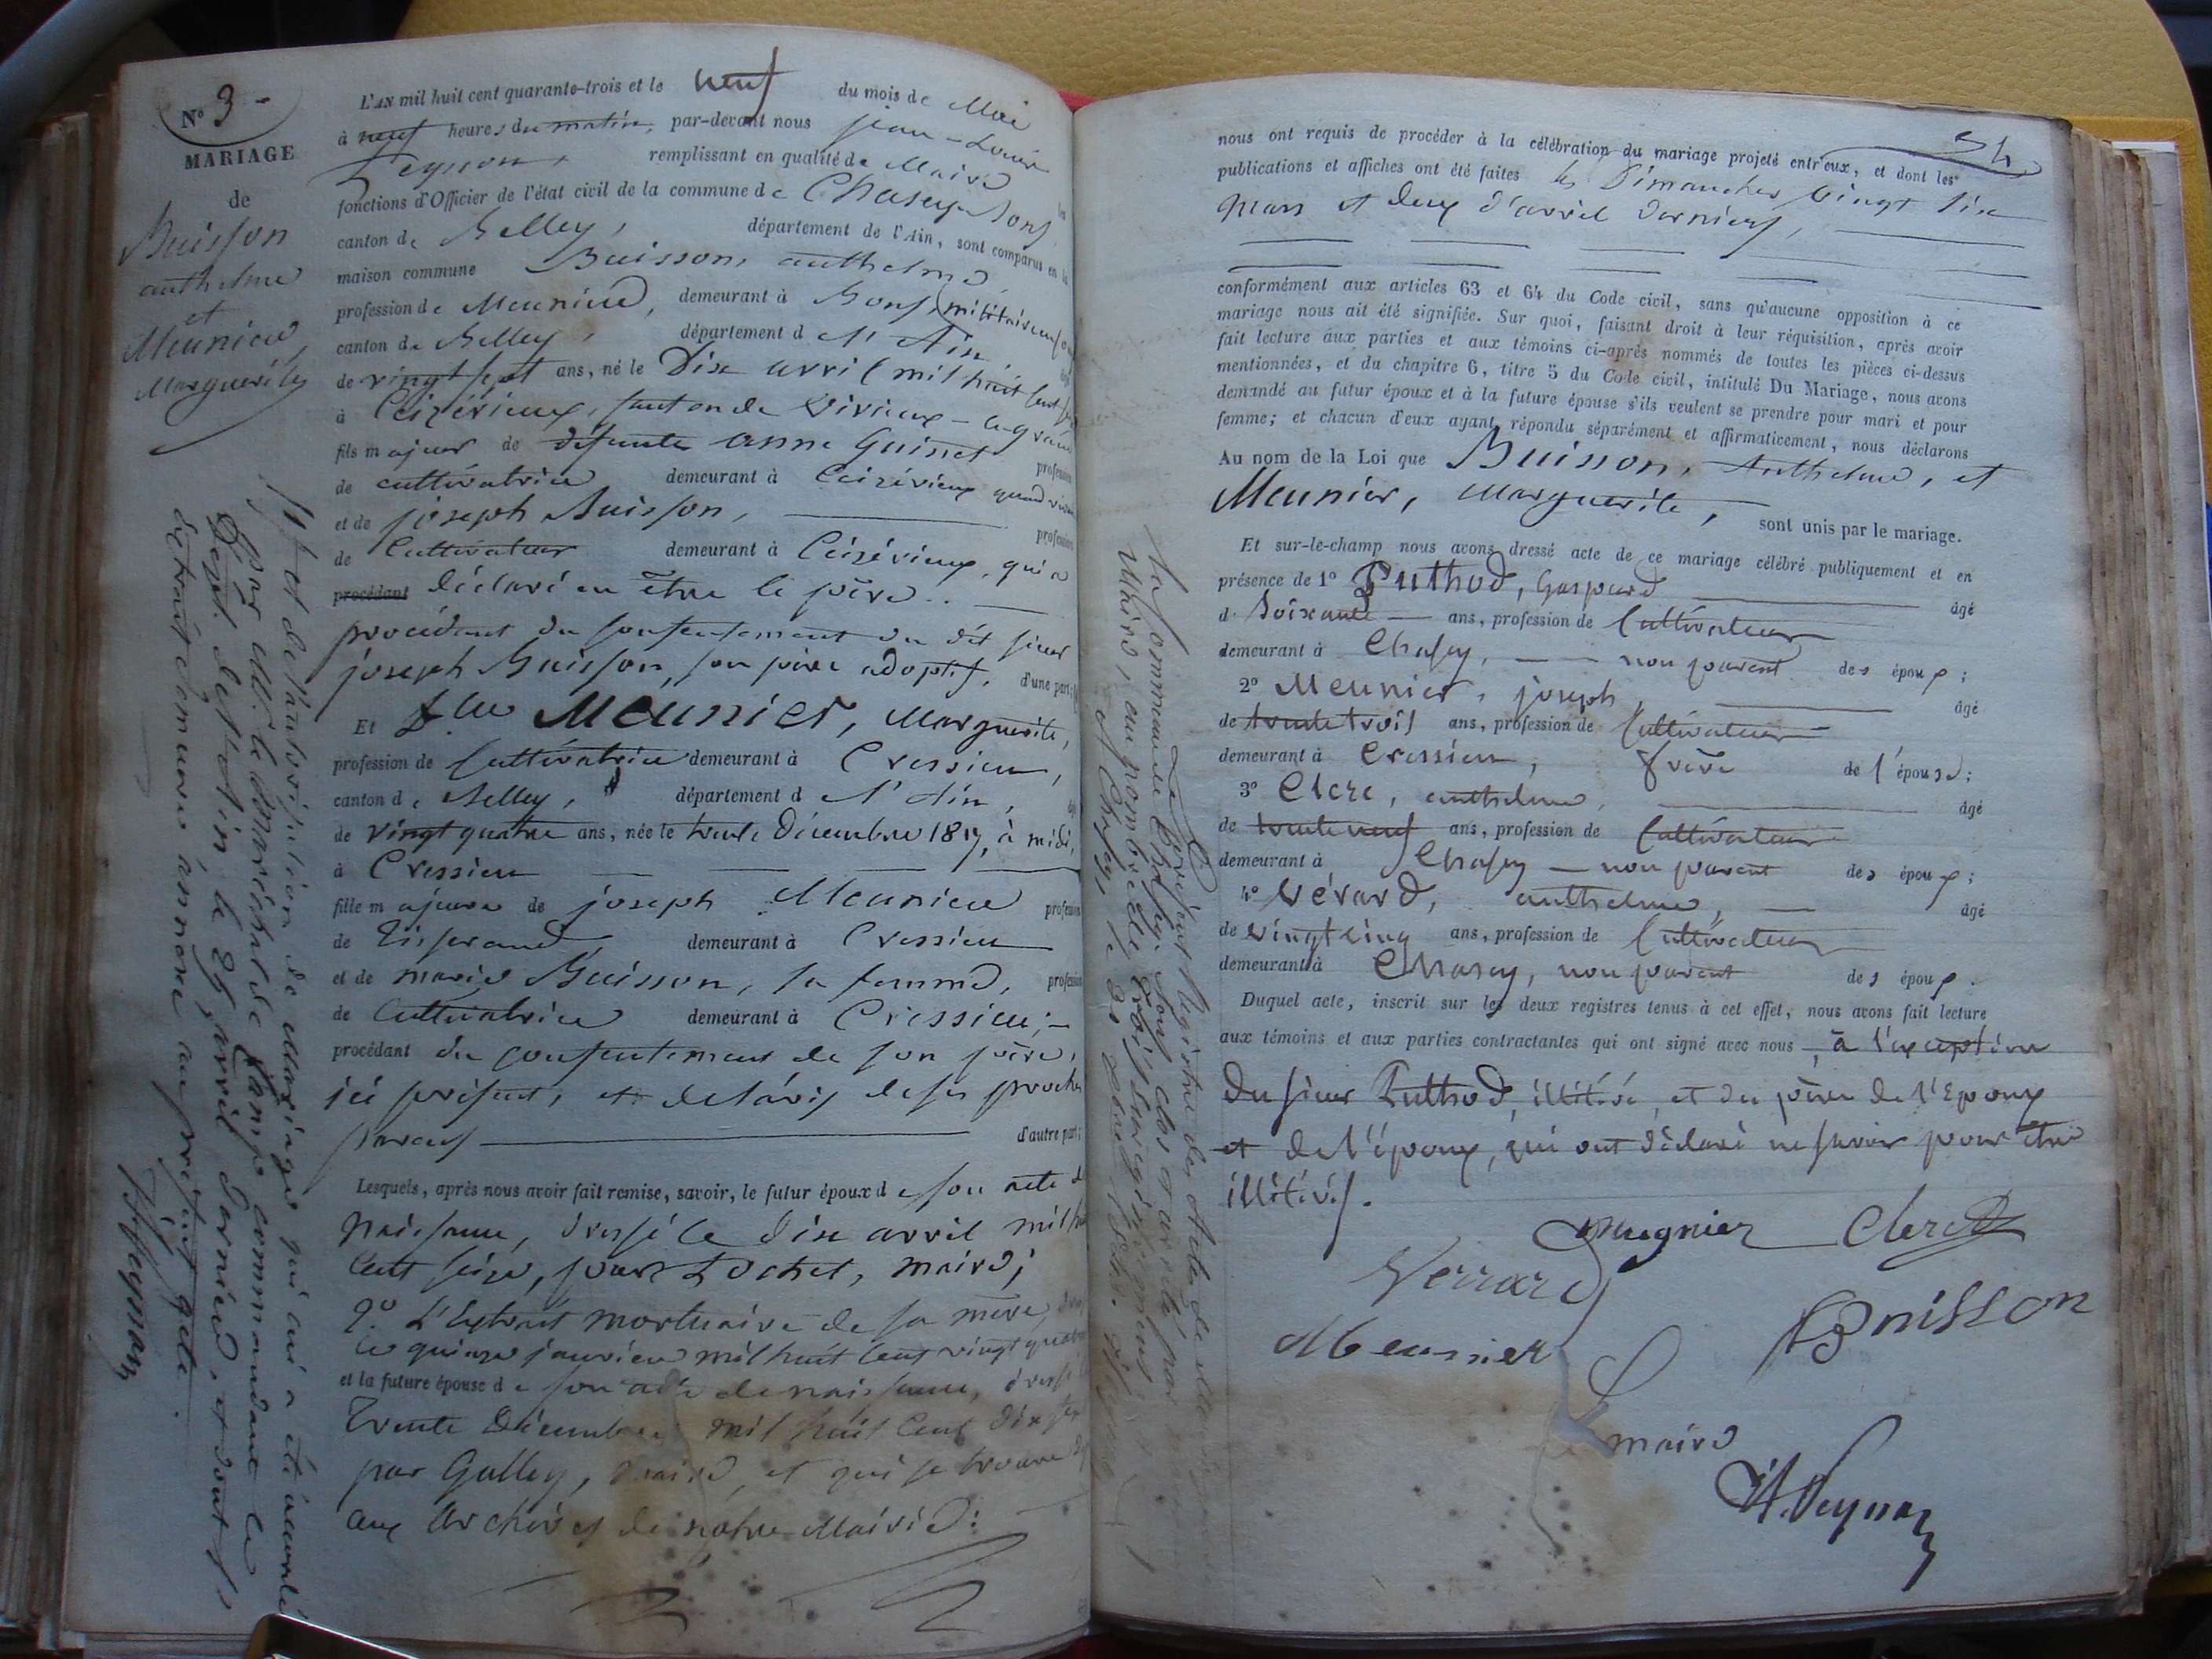 N.º 3.
MARIAGE
de
Buisson
anthelme
et
Meunier
Marguerite
L'AN mil huit cent quarante-trois et le neuf du mois de Mai
à neuf heures du matin, par-devant nous jean-Louis
Peysson, remplissant en qualité de Maire les
fonctions d'Officier de l'état civil de la commune de Chasey-Bons
canton de Belley, département de l'Ain, sont comparus en la
maison commune Buisson, anthelme
profession de Meunier, demeurant à Bons, militaire en
canton de Belley, département d l'Ain
de vingt sept ans, né le Dix avril mil huit cent
à Ceizérieux, canton de Virieux-le-grand
fils majeur de defunte anne Guinet profession
de cultivatrice demeurant à Ceizérieux quand vivait
et de joseph Buisson, profession
de Cultivateur demeurant à Ceizérieux, qui a
procédant déclaré en être le père.
procédant du consentement du dit sieur
joseph Buisson, son père adoptif, d'une part;
Et Dlle Meunier, Marguerite,
profession de Cultivatrice demeurant à Cressieu,
canton de Belley, département d l'Ain,
de vingt quatre ans, née le trente Décembre 1817, à midi,
à Cressieu
fille majeure de joseph Meunier profession
de Tisserand demeurant à Cressieu
et de marie Buisson, sa femme, profession
de Cultivatrice demeurant à Cressieu;
procédant du consentement de son père,
ici présent, et de l'avis de ses proches
parens d'autre part;
Lesquels, après nous avoir fait remise, savoir, le futur époux de son acte de
naissance, dressé le dix avril mil huit
cent seize, par Lochet, maire;
2º. L'Extrait mortuaire de sa mère,
le quinze janvier mil huit cent vingt quatre
et la future épouse de son acte de naissance, dressé
trente Décembre mil huit cent dix sept
par Galley, maire, et qui se trouve
aux archives de notre Mairie:
et de l'autorisation de Mariage qui lui a été accordée
par Mr. le Maréchal de Camp commandant le
Dépt. de l'Ain le 25 avril dernier, et dont l'
extrait demeure annexé au présent acte.
nous ont requis de procéder à la célébration du mariage projeté entr'eux, et dont les
publications et affiches ont été faites les Dimanches vingt six
mars et deux d'avril derniers,
conformément aux articles 63 et 64 du Code civil, sans qu'aucune opposition à ce
mariage nous ait été signifiée. Sur quoi, faisant droit à leur réquisition, après avoir
fait lecture aux parties et aux témoins ci-après nommés de toutes les pièces ci-dessus
mentionnées, et du chapitre 6, titre 5 du Code civil, intitulé Du Mariage, nous avons
demandé au futur époux et à la future épouse s'ils veulent se prendre pour mari et pour
femme; et chacun d'eux ayant répondu séparément et affirmativement, nous déclarons
Au nom de la Loi que Buisson, Anthelme, et
Meunier, Marguerite, sont unis par le mariage.
Et sur-le-champ nous avons dressé acte de ce mariage célébré publiquement et en
présence de 1º Puthod, Gaspard âgé
d. Soixante ans, profession de Cultivateur
demeurant à Chasey, non parent des époux;
2º Meunier, joseph âgé
de trente trois ans, profession de Cultivateur
demeurant à Cressieu, frère de l'épouse;
3º Clerc, anthelme, âgé
de trente neuf ans, profession de Cultivateur
demeurant à Chasey non parent des époux;
4º Vérard, anthelme, âgé
de vingt cinq ans, profession de Cultivateur
demeurant à Chasey, non parent des époux.
Duquel acte, inscrit sur les deux registres tenus à cet effet, nous avons fait lecture
aux témoins et aux parties contractantes qui ont signé avec nous, à l'exception
du sieur Puthod, illitéré, et du père de l'Epoux
et de l'époux, qui ont déclaré ne savoir pour être
illitérés.
Mugnier Clerc
Verrard
Buisson
Meunier
Le
maire
Le Présent Registre des Actes de
la commune de Chasey-Bons clos et arrêté par